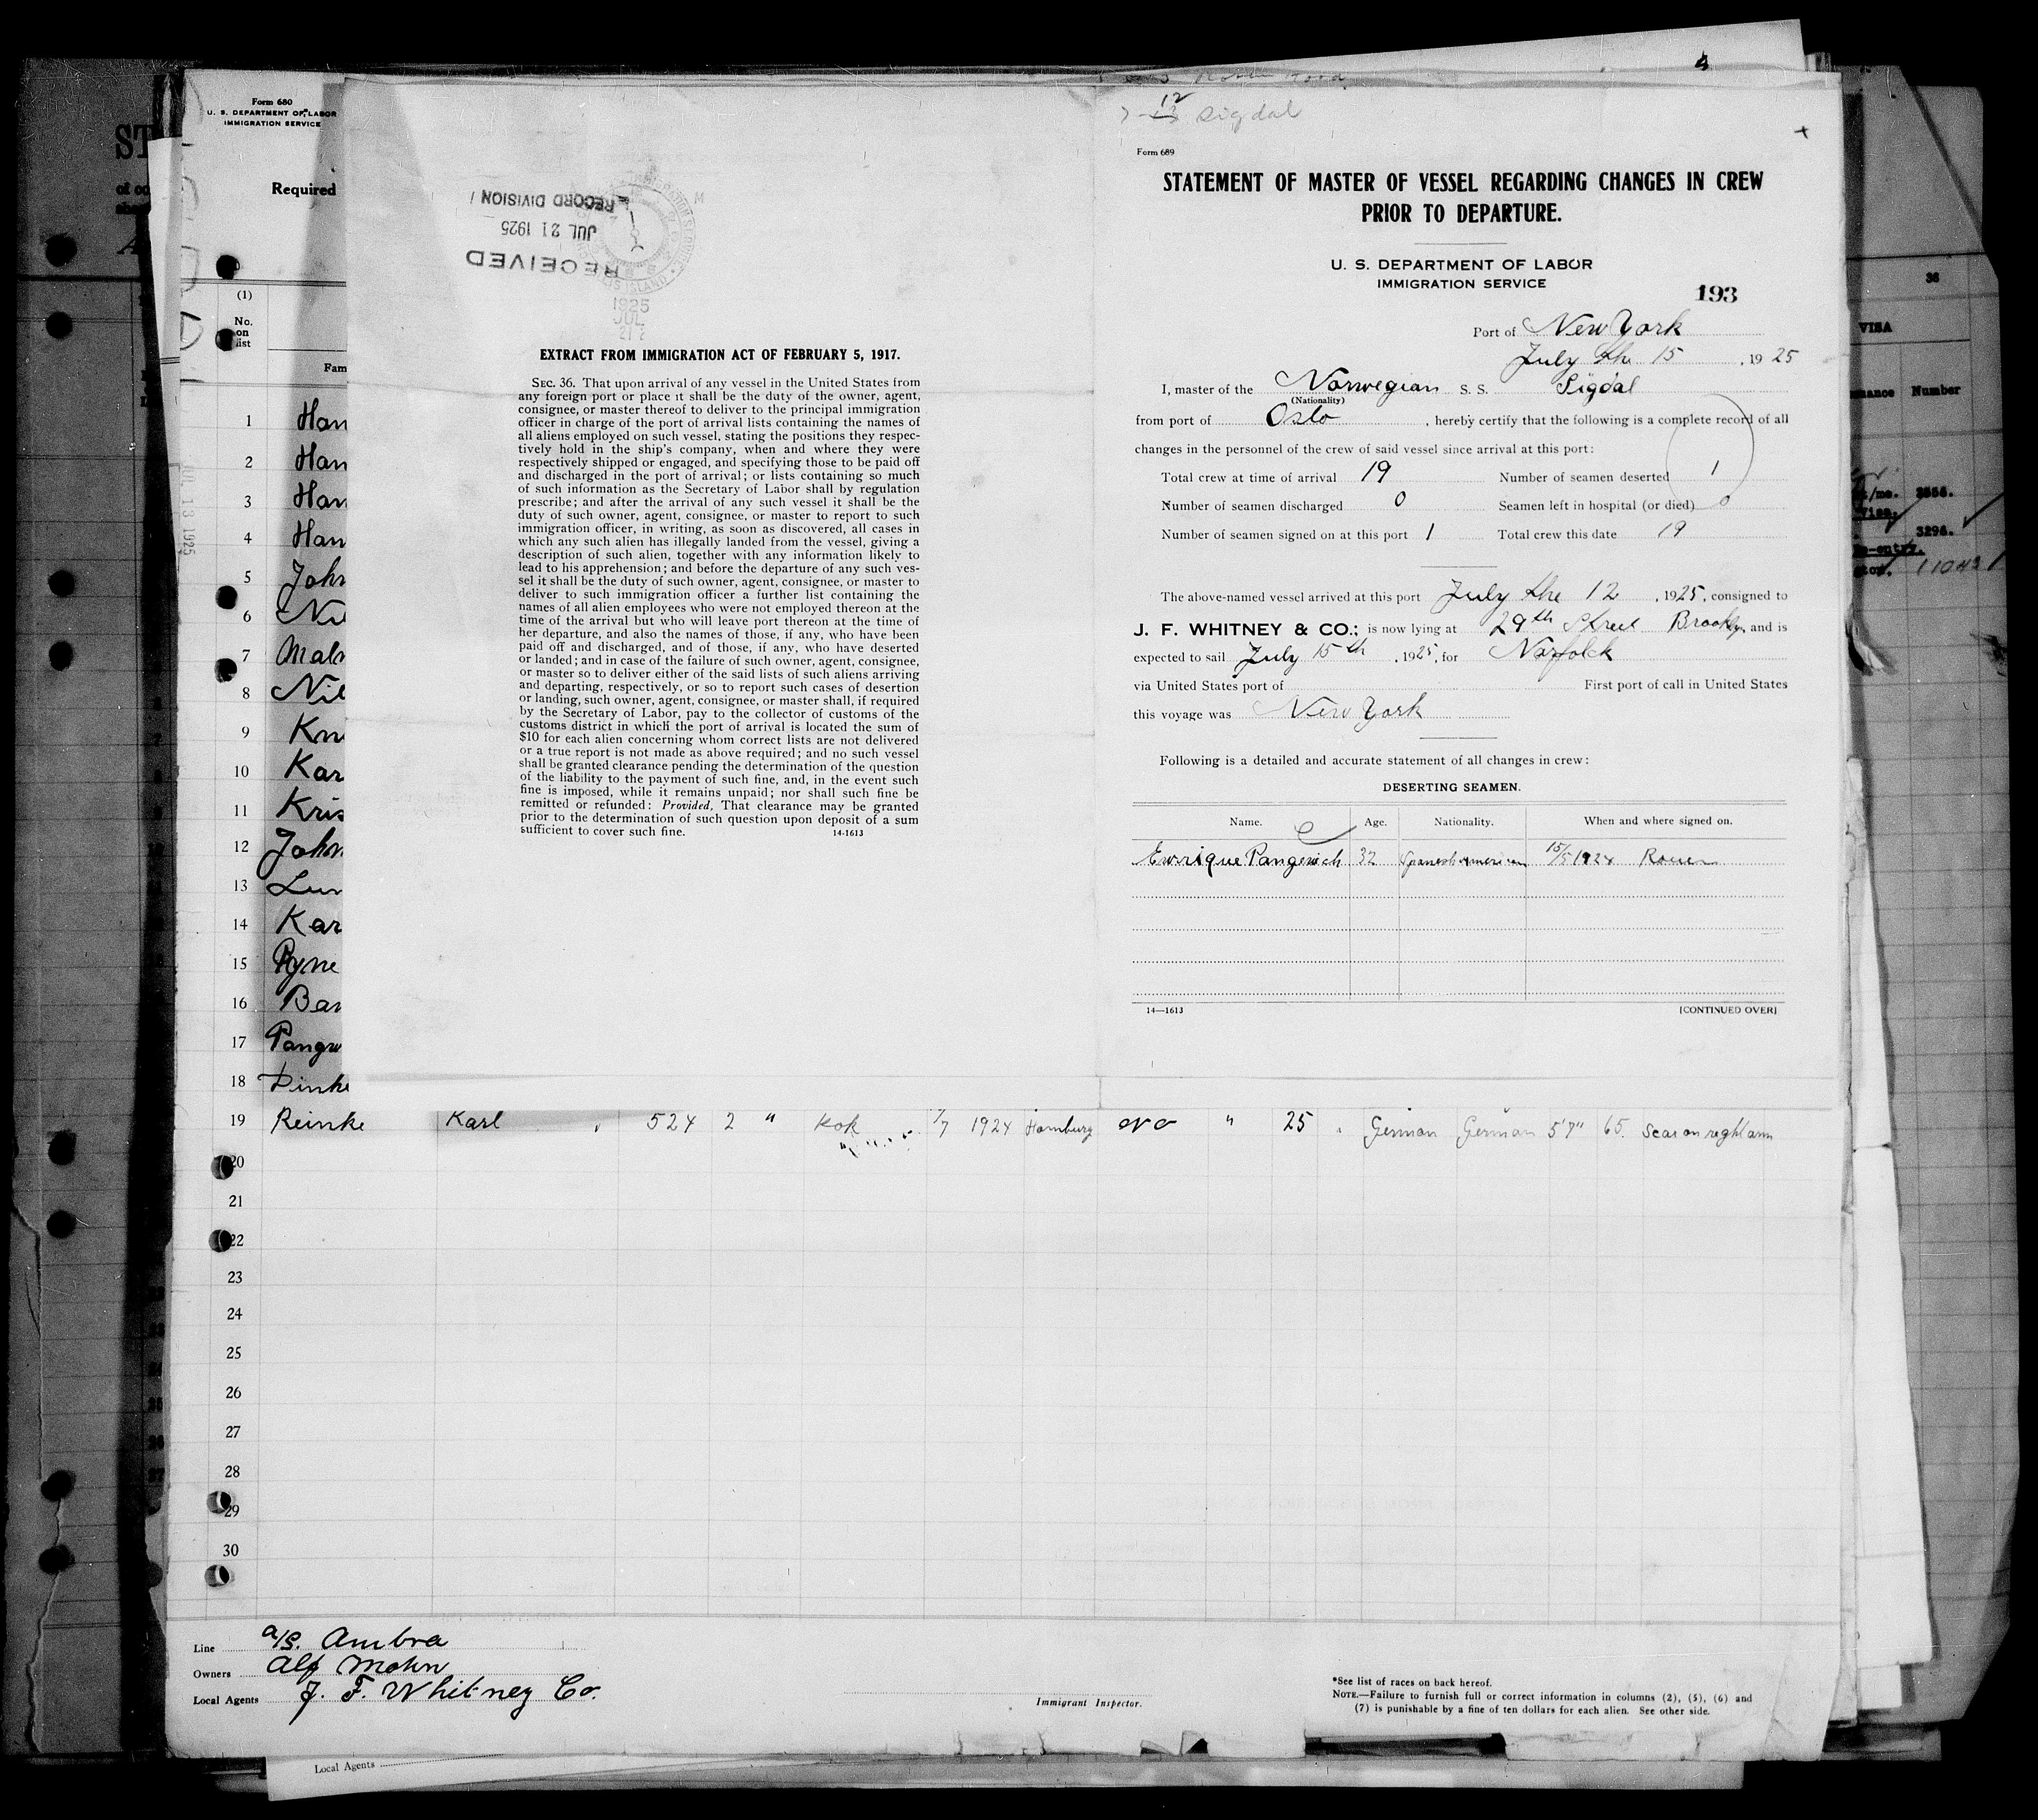 Form 680
U. S. DEPARTMENT OF LABOR
IMMIGRATION SERVICE
Required
(1)
No.
on
list
Fam
1 Han
2 Han
3 Han
4 Han
5 John
6 Ni
7 Malm
8 Nil
9 Kn
10 Kar
11 Kris
12 John
13 Lun
14 Kar
15 Ryne
16 Bar
17 Pange
18 Dinke
19 Reinke Karl 524 2 " Kok 1/7 1924 Hamburg No " 25 German German 5'7" 65. Scar on right arm
20
21
22
23
24
25
26
27
28
29
30
Line a/s. Ambra
Owners Alf Mohn
Local Agents J. F. Whitney Co.
Immigrant Inspector.
*See list of races on back hereof.
NOTE.—Failure to furnish full or correct information in columns (2), (5), (6) and
(7) is punishable by a fine of ten dollars for each alien. See other side.
Local Agents
JUL 13 1925
RECEIVED
JUL 21 1925
RECORD DIVISION
1925
JUL
21
EXTRACT FROM IMMIGRATION ACT OF FEBRUARY 5, 1917.
SEC. 36. That upon arrival of any vessel in the United States from
any foreign port or place it shall be the duty of the owner, agent,
consignee, or master thereof to deliver to the principal immigration
officer in charge of the port of arrival lists containing the names of
all aliens employed on such vessel, stating the positions they respec-
tively hold in the ship's company, when and where they were
respectively shipped or engaged, and specifying those to be paid off
and discharged in the port of arrival; or lists containing so much
of such information as the Secretary of Labor shall by regulation
prescribe; and after the arrival of any such vessel it shall be the
duty of such owner, agent, consignee, or master to report to such
immigration officer, in writing, as soon as discovered, all cases in
which any such alien has illegally landed from the vessel, giving a
description of such alien, together with any information likely to
lead to his apprehension; and before the departure of any such ves-
sel it shall be the duty of such owner, agent, consignee, or master to
deliver to such immigration officer a further list containing the
names of all alien employees who were not employed thereon at the
time of the arrival but who will leave port thereon at the time of
her departure, and also the names of those, if any, who have been
paid off and discharged, and of those, if any, who have deserted
or landed; and in case of the failure of such owner, agent, consignee,
or master so to deliver either of the said lists of such aliens arriving
and departing, respectively, or so to report such cases of desertion
or landing, such owner, agent, consignee, or master shall, if required
by the Secretary of Labor, pay to the collector of customs of the
customs district in which the port of arrival is located the sum of
$10 for each alien concerning whom correct lists are not delivered
or a true report is not made as above required; and no such vessel
shall be granted clearance pending the determination of the question
of the liability to the payment of such fine, and, in the event such
fine is imposed, while it remains unpaid; nor shall such fine be
remitted or refunded: Provided, That clearance may be granted
prior to the determination of such question upon deposit of a sum
sufficient to cover such fine. 14-1613
7-12 Sigdal
Form 689
STATEMENT OF MASTER OF VESSEL REGARDING CHANGES IN CREW
PRIOR TO DEPARTURE.
U. S. DEPARTMENT OF LABOR
IMMIGRATION SERVICE
193
Port of New York
July the 15, 1925
I, master of the Norwegian S. S. Sigdal
(Nationality)
from port of Oslo, hereby certify that the following is a complete record of all
changes in the personnel of the crew of said vessel since arrival at this port:
Total crew at time of arrival 19 Number of seamen deserted 1
Number of seamen discharged 0 Seamen left in hospital (or died) 0
Number of seamen signed on at this port 1 Total crew this date 19
The above-named vessel arrived at this port July the 12, 1925, consigned to
J. F. WHITNEY & CO.; is now lying at 29th Street Brooklyn, and is
expected to sail July 15th, 1925, for Norfolck
via United States port of First port of call in United States
this voyage was New York
Following is a detailed and accurate statement of all changes in crew:
DESERTING SEAMEN.
Name. Age. Nationality. When and where signed on.
Enrique Pangewich 32 Spanesh American 15/5 1924 Rouen
14—1613 [CONTINUED OVER]
36
VISA
Number
3556.
3296.
11043